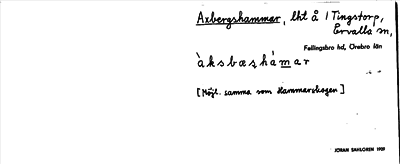 Axbergshammar, lht å 1 Tingstorp,
Ervalla sn,
Fellingsbro hd, Örebro län
àksbæʂhámar
[Möjl. samma som Hammarskogen]
JÖRAN SAHLGREN 1929